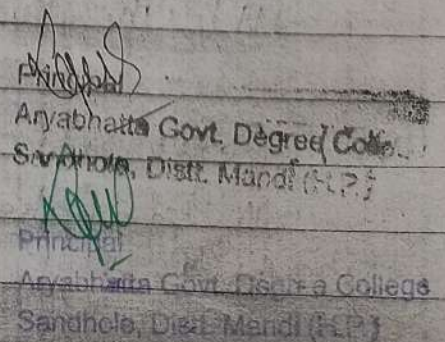 Principal
Aryabhatta Govt. Degree Colle
Sandhole, Distt. Mandi (H.P.)
Principal
Aryabhatta Govt. Degree College
Sandhole, Distt. Mandi (H.P.)